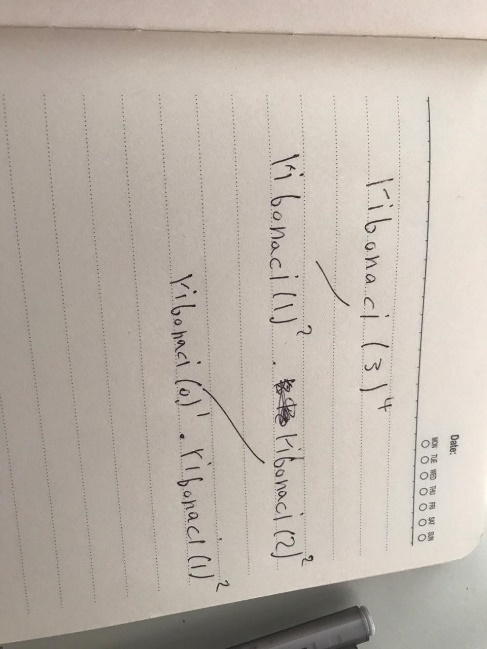 Date:
MON TUE WED THU FRI SAT SUN
Fibonaci (3)⁴
Fibonaci (1)² . Fibonaci (2)²
Fibonaci (0)¹ . Fibonaci (1)²